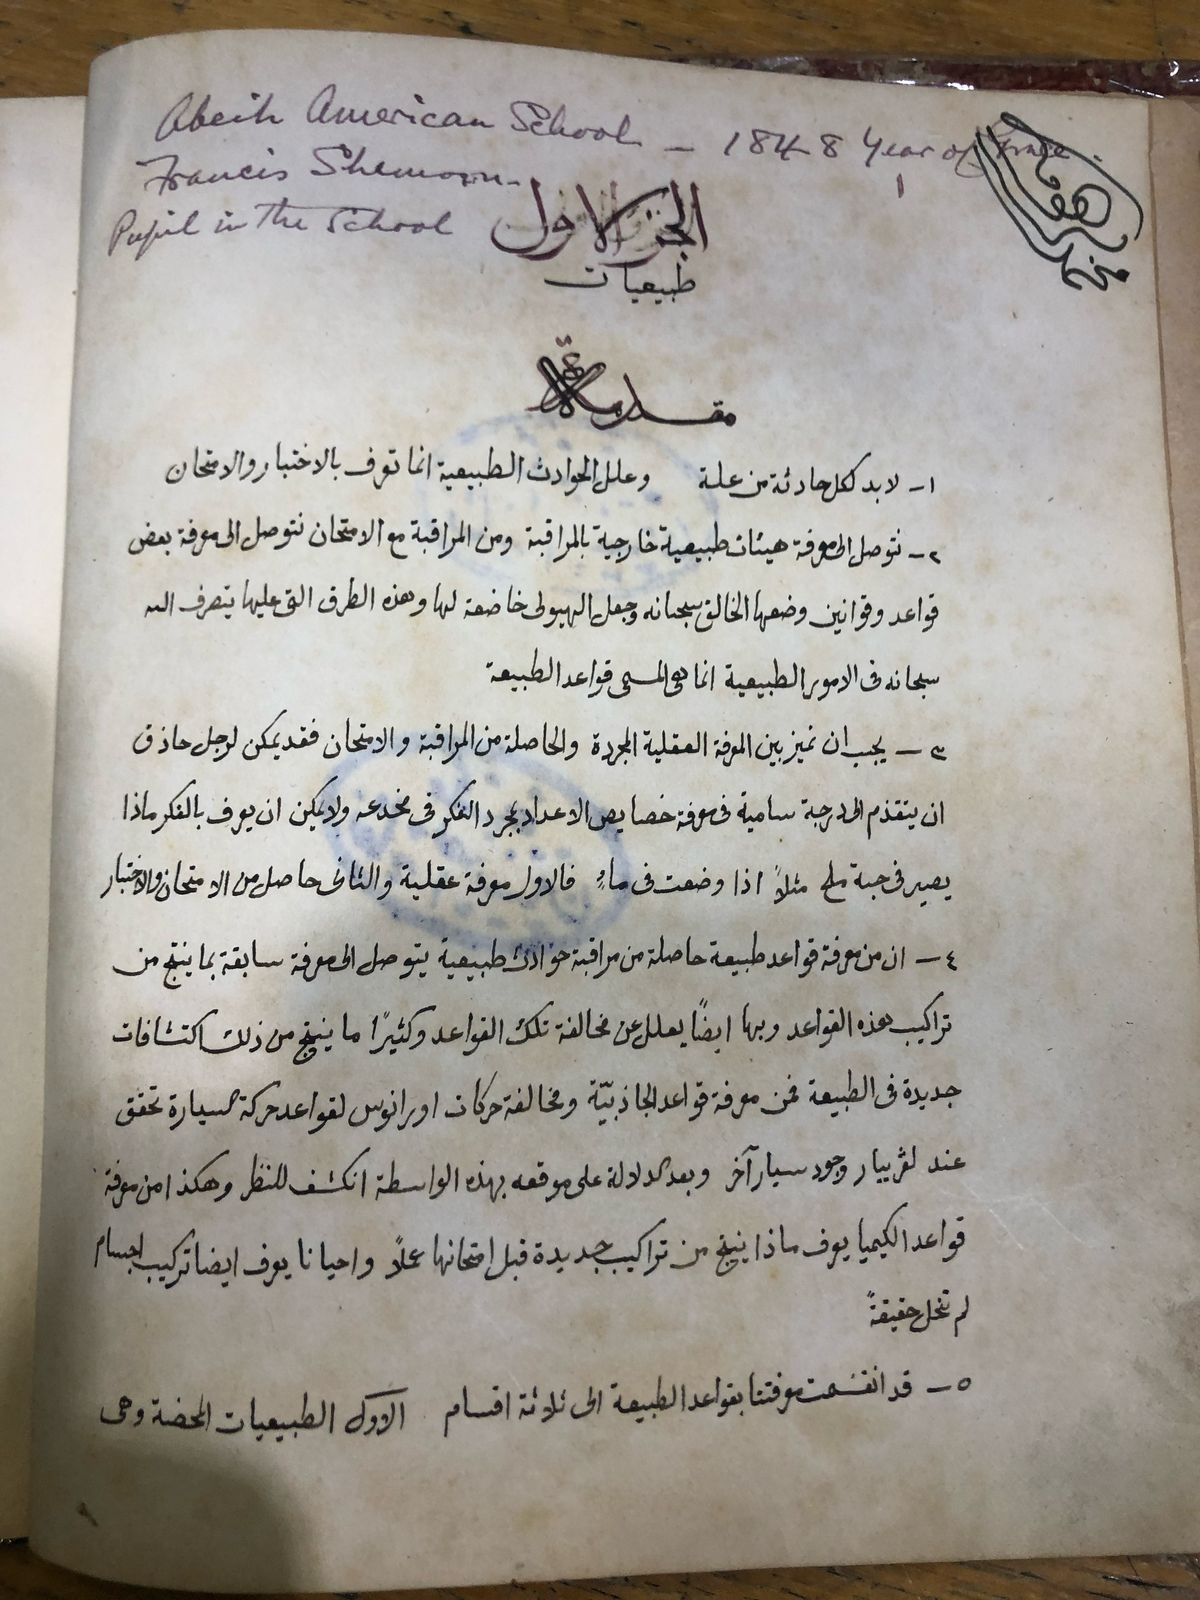 Abeih American School - 1848 Year of Grace.
Francis Shemoun-
Pupil in the School
1
الجزء الاول
طبيعيات
مقدمة
١- لا بد لكل حادثة من علة وعلل الحوادث الطبيعية انما تعرف بالاختبار والامتحان
٢- نتوصل الى معرفة هيئات طبيعية خارجية بالمراقبة ومن المراقبة مع الامتحان نتوصل الى معرفة بعض
قواعد وقوانين وضعها الخالق سبحانه وجعل الهيولى خاضعة لها وهذه الطرق التى عليها يتصرف الله
سبحانه فى الامور الطبيعية انما هى المسمى قواعد الطبيعة
٣- يجب ان نميز بين المعرفة العقلية المجردة والحاصلة من المراقبة والامتحان فقد يمكن لرجل حاذق
ان يتقدم الى درجة سامية فى معرفة خصايص الاعداد بمجرد الفكر فى مخدعه ولا يمكن ان يعرف بالفكر ماذا
يصير فى حبة ملح مثلاً اذا وضعت فى ماءٍ فالاول معرفة عقلية والثانى حاصل من الامتحان والاختبار
٤- ان من معرفة قواعد طبيعة حاصلة من مراقبة حوادث طبيعية يتوصل الى معرفة سابقة بما ينتج من
تراكيب هذه القواعد وبها ايضًا يعلل عن مخالفة تلك القواعد وكثيرًا ما ينتج من ذلك اكتشافات
جديدة فى الطبيعة فمن معرفة قواعد الجاذبيّة ومخالفة حركات اورانوس لقواعد حركة السيارة تحقق
عند لڤريار وجود سيار آخر وبعد الدلالة على موقعه بهذه الواسطة انكشف للنظر وهكذا من معرفة
قواعد الكيميا يعرف ماذا ينتج من تراكيب جديدة قبل امتحانها عملاً واحيانا يعرف ايضا تركيب اجسام
لم تنحل حقيقةً
٥- قد انقسمت معرفتنا بقواعد الطبيعة الى ثلاثة اقسام الاول الطبيعيات المحضة وهى